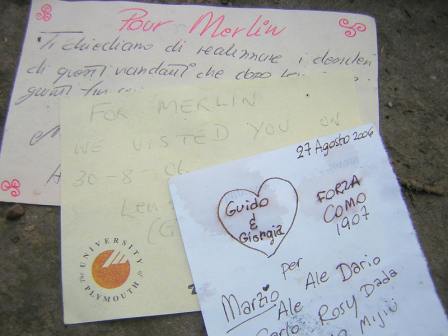 Pour Merlin
Ti chiediamo di realizzare i desideri
di questi viandanti che dopo
questi
FOR MERLIN
WE VISTED YOU ON
30-8-06
Len
The UNIVERSITY of PLYMOUTH
27 Agosto 2006
Guido
&
Giorgia
FORZA
COMO
1907
per
Marzio Ale Dario
Ale Rosy Dada
Carlo